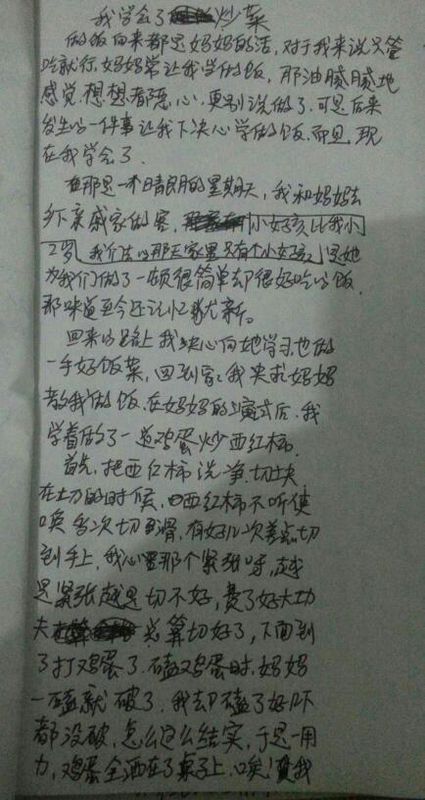 我学会了炒菜
做饭向来都是妈妈的活,对于我来说只管
吃就行,妈妈常让我学做饭,那油腻腻地
感觉,想想都恶心,更别说做了.可是后来
发生的一件事让我下决心学做饭.而且,现
在我学会了.
在那是一个晴朗的星期天,我和妈妈去
乡下亲戚家做客,小女孩比我小
2岁 我们去的那天家里只有个小女孩 是她
为我们做了一顿很简单却很好吃的饭,
那味道至今还记忆犹新。
回来的路上我决心向她学习也做
一手好饭菜,回到家,我央求妈妈
教我做饭.在妈妈的演式后,我
学着做了一道鸡蛋炒西红柿.
首先,把西红柿洗净,切块
在切的时候,西红柿不听使
唤 每次切到滑,有好几次差点切
到手上,我心里那个紧张呀,越
是紧张越是切不好,费了好大功
夫 总算切好了,下面到
了打鸡蛋了.磕鸡蛋时,妈妈
一磕就破了.我却磕了好几下
都没破,怎么这么结实,于是一用
力,鸡蛋全洒在了桌子上.唉!费我